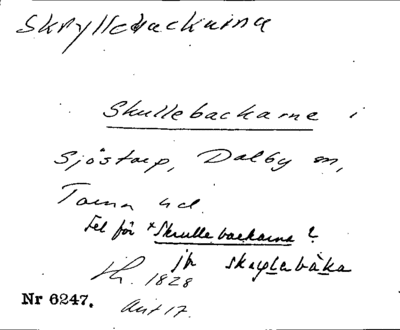 Skryllebackarna
Skullebackarne i
Sjöstorp, Dalby sn,
Torna hd.
Fel för *Skrullebackarne?
jfr skrylabáka
1828
Nr 6247. Avit 17.